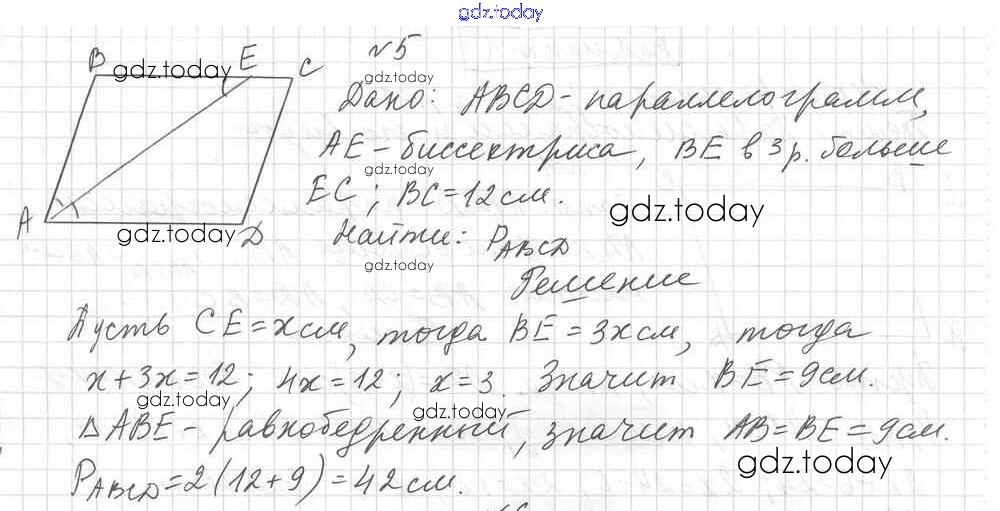 gdz.today
№5
B E C
gdz.today
gdz.today
Дано: ABCD - параллелограмм,
AE - биссектриса, BE в 3 р. больше
EC; BC = 12 см.
gdz.today
A D
gdz.today
Найти: P ABCD
gdz.today
Решение
Пусть CE = x см, тогда BE = 3x см, тогда
x + 3x = 12; 4x = 12; x = 3. Значит BE = 9 см.
gdz.today
gdz.today
△ABE - равнобедренный, значит AB = BE = 9 см.
gdz.today
P ABCD = 2(12 + 9) = 42 см.